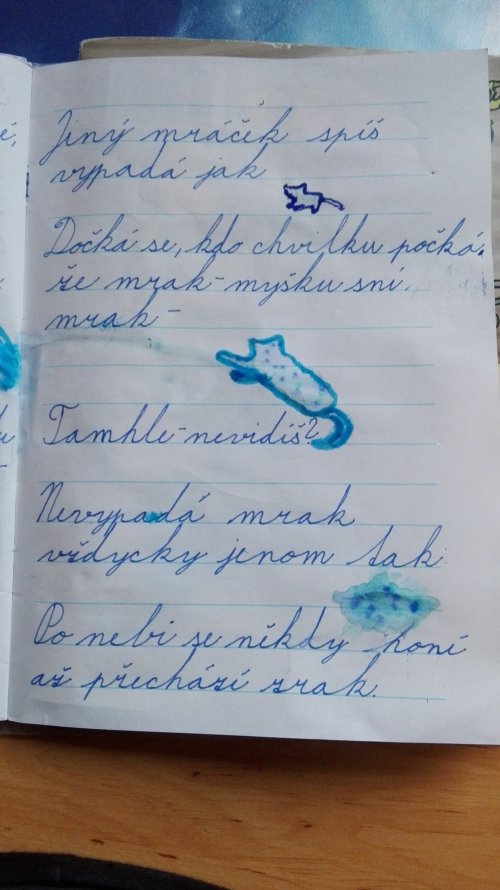 Jiný mráček spíš
vypadá jak
Dočká se, kdo chvilku počká,
že mrak-myšku sní.
mrak-
Tamhle-nevidíš?
Nevypadá mrak
vždycky jenom tak
Po nebi se někdy honí
až přechází zrak.